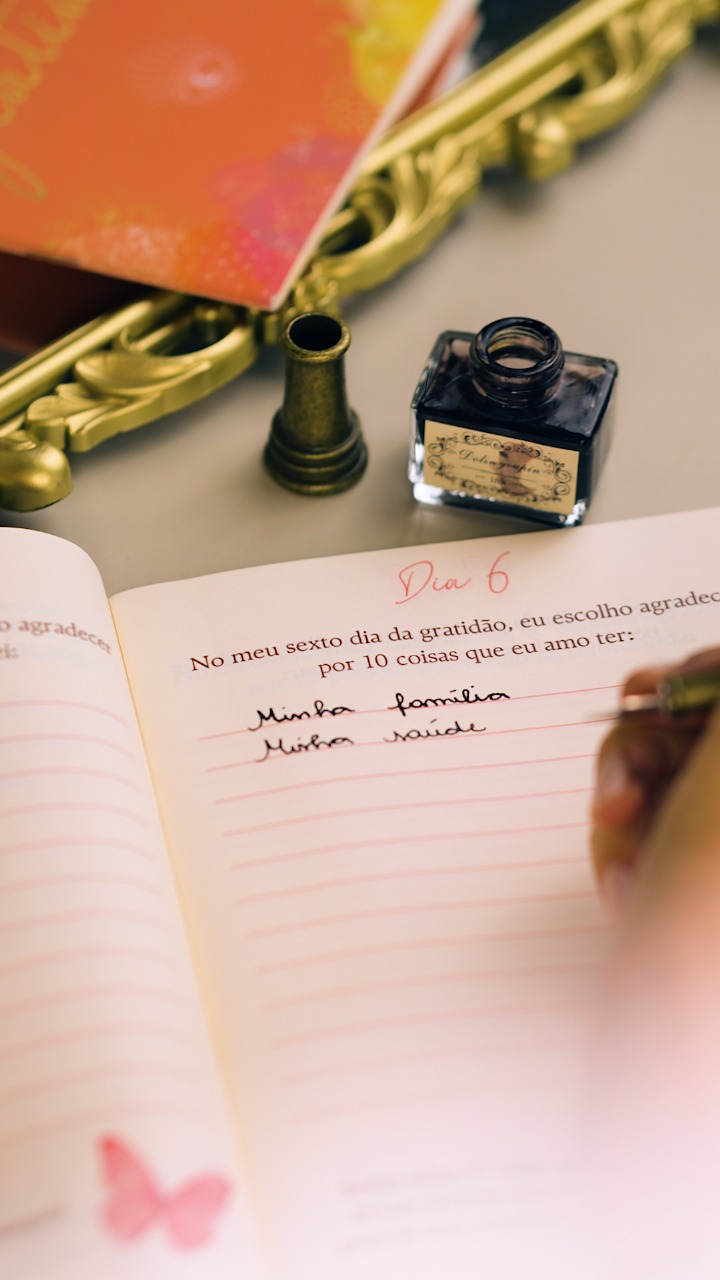 Dia 6
No meu sexto dia da gratidão, eu escolho agradec
por 10 coisas que eu amo ter:
Minha família
Minha saúde
o agradecer